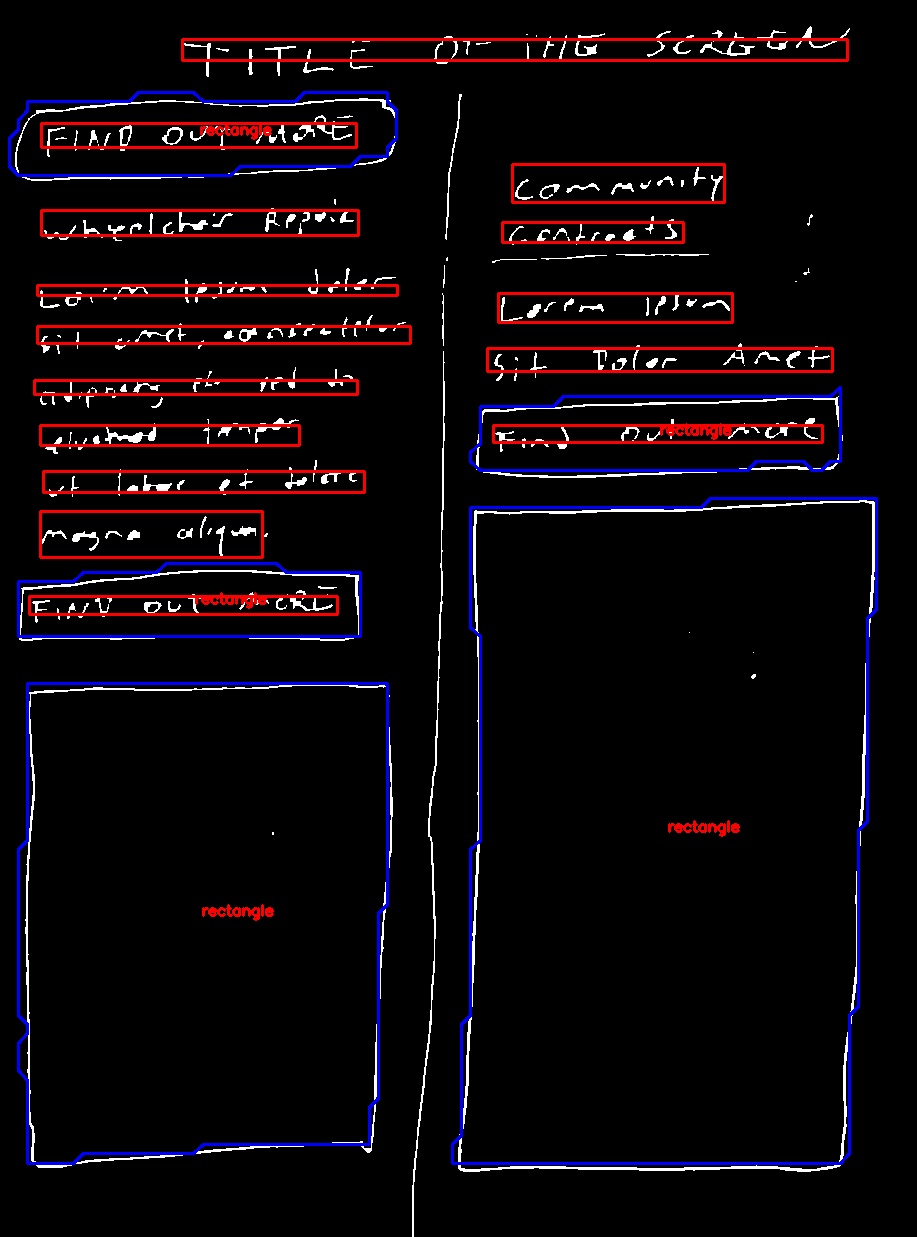 TITLE OF THE SCREEN
FIND OUT MORE
rectangle
Wheelchais Repair
Lorem Ipsum dolor
sit amet, consectetor
adipiscing elit sed do
eiusmod tempor
ut labor et dolore
magna aliqua.
FIND OUT MORE
rectangle
rectangle
Community
Contracts
Lorem Ipsum
Sit Dolor Amet
Find out more
rectangle
rectangle